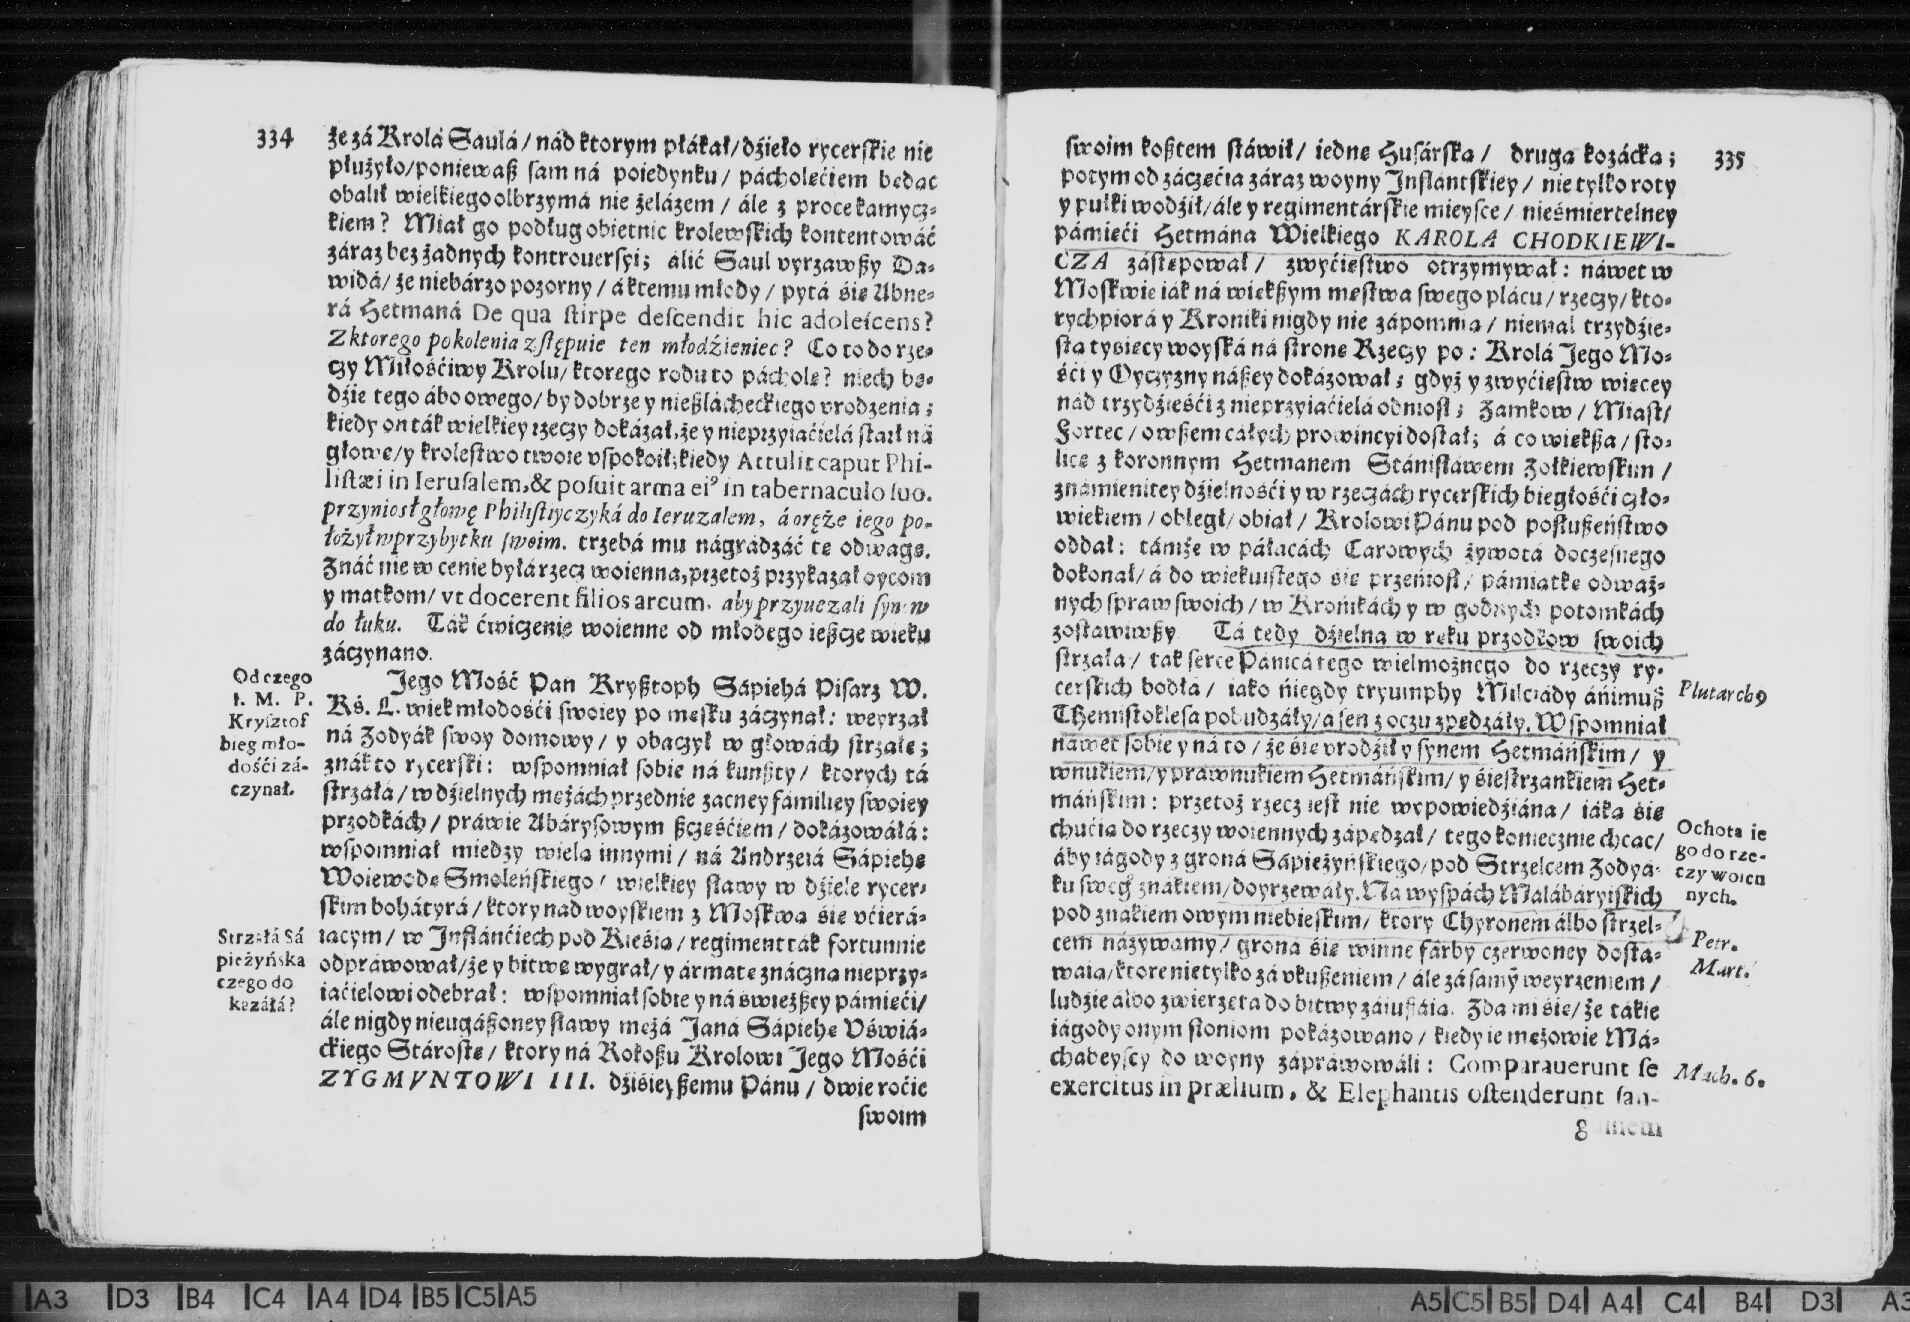 334
że zá Krolá Saulá / nád ktorym płákał / dźieło rycerſkie nie
płużyło / ponieważ ſam ná poiedynku / pácholęćiem będąc
obalił wielkiego olbrzymá nie żelázem / ále z proce kamycz-
kiem? Miał go podług obietnic krolewſkich kontentowáć
záraz bez żadnych kontrouerſyi; álić Saul vyrzawßy Da-
widá / że niebárzo pozorny / á ktemu młody / pytá śię Abne-
rá Hetmaná De qua ſtirpe deſcendit hic adoleſcens?
Z ktorego pokolenia zſtępuie ten młodźieniec? Co to do rze-
czy Miłośćiwy Krolu / ktorego rodu to páchole? niech bę-
dźie tego ábo owego / by dobrze y nießlácheckiego vrodzenia;
kiedy on ták wielkiey rzeczy dokázał, że y nieprzyiaćielá ſtarł ná
głowę / y kroleſtwo twoie vſpokoił; kiedy Attulit caput Phi-
liſtæi in Ieruſalem, & poſuit arma ei⁹ in tabernaculo ſuo.
przyniosł głowę Philiſtyczyká do Ieruzalem, á oręże iego po-
łożył w przybytku ſwoim. trzebá mu nágrádzáć tę odwagę.
Znáć nie w cenie byłá rzecz woienna, przetoż przykazał oycom
y matkom / vt docerent filios arcum. aby przyuczali ſynow
do łuku. Ták ćwiczenie woienne od młodego ießcze wieku
záczynano.
Od czego
I. M. P.
Kryſztof
bieg mło-
dośći zá-
czynał.
Jego Mość Pan Kryßtoph Sápiehá Piſarz W.
Kś. L. wiek młodośći ſwoiey po męſku záczynał: weyrzał
ná Zodyák ſwoy domowy / y obaczył w głowách ſtrzałę;
znák to rycerſki: wſpomniał ſobie ná kunßty / ktorych tá
ſtrzałá / w dźielnych mężách przednie zacney fámiliey ſwoiey
przodkách / práwie Abáryſowym ßczęśćiem / dokázowáłá:
wſpomniał między wielą innymi / ná Andrzeiá Sápiehę
Woiewodę Smoleńſkiego / wielkiey ſławy w dźiele rycer-
ſkim bohátyrá / ktory nad woyſkiem z Moſkwą śię vćierá-
Strzáłá Sá
pieżyńska
czego do
kazáłá?
iącym / w Inflánćiech pod Kieśią / regiment ták fortunnie
odpráwował / że y bitwę wygrał / y ármatę znáczną nieprzy-
iaćielowi odebrał: wſpomniał ſobie y ná świeżßey pámięći /
ále nigdy nieugáßoney ſławy mężá Janá Sápiehę Vświá-
ckiego Stároſtę / ktory ná Rokoßu Krolowi Jego Mośći
ZYGMVNTOWI III. dźiśieyßemu Pánu / dwie roćie
ſwoim
335
ſwoim koßtem ſtáwił / iednę Huſárſką / drugą kozácką;
potym od záczęćia záraz woyny Inflantſkiey / nie tylko roty
y pułki wodźił / ále y regimentárſkie mieyſce / nieśmiertelney
pámięći Hetmána Wielkiego KAROLA CHODKIEWI-
CZA záſtępował / zwyćięſtwo otrzymywał: náwet w
Moſkwie iák ná więkßym męſtwa ſwego plácu / rzeczy / kto-
rych piorá y Kroniki nigdy nie zápomnią / niemal trzydźie-
ſtá tyśięcy woyſká ná ſtronę Rzeczy po: Krolá Jego Mo-
śći y Oyczyzny náßey dokázował; gdyż y zwyćięſtw więcey
nád trzydźieśći z nieprzyiaćielá odnioſł; Zamkow / Miaſt /
Fortec / owßem cáłych prowincyi doſtał; á co więkßa / ſto-
licę z koronnym Hetmanem Stániſłáwem Żołkiewſkim /
známienitey dźielnośći y w rzeczách rycerſkich biegłośći czło-
wiekiem / obległ / obiął / Krolowi Pánu pod poſłußeńſtwo
oddał: támże w páłacách Carowych żywotá doczeſnego
dokonał / á do wiekuiſtego śię przeńioſł / pámiątkę odważ-
nych ſpraw ſwoich / w Kronikách y w godnych potomkách
zoſtáwiwßy. Tá tedy dźielna w ręku przodkow ſwoich
ſtrzałá / ták ſerce Pánicá tego wielmożnego do rzeczy ry-
cerſkich bodłá / iáko niegdy tryumphy Milciády ánimuß
Plutarch⁹
Themiſtokleſa pobudzáły / a ſen z oczu zpędzáły. Wſpomniał
náwet ſobie y ná to / że śię vrodźił y ſynem Hetmáńſkim / y
wnukiem / y práwnukiem Hetmáńſkim / y śieſtrzankiem Het-
máńſkim: przetoż rzecz ieſt nie wypowiedźiána / iáką śię
chućią do rzeczy woiennych zápędzał / tego koniecznie chcąc /
Ochota ie
go do rze-
czy woien
nych.
áby iágody z groná Sápieżyńſkiego / pod Strzelcem Zodyá-
ku ſweg° znákiem / doyrzewáły. Ná wyſpách Málábáryiſkich
pod znákiem owym niebieſkim / ktory Chyronem álbo ſtrzel-
cem názywamy / groná śię winne fárby czerwoney doſta-
Petr.
Mart.
waią / ktore nie tylko zá vkußeniem / ále zá ſamỹ weyrzeniem /
ludźie álbo zwierzętá do bitwy záiuſzáią. Zda mi śię / że tákie
iágody onym ſłoniom pokázowano / kiedy ie mężowie Má-
chabeyſcy do woyny zápráwowáli: Comparauerunt ſe
Mach. 6.
exercitus in prælium, & Elephantis oſtenderunt ſan-
guinem